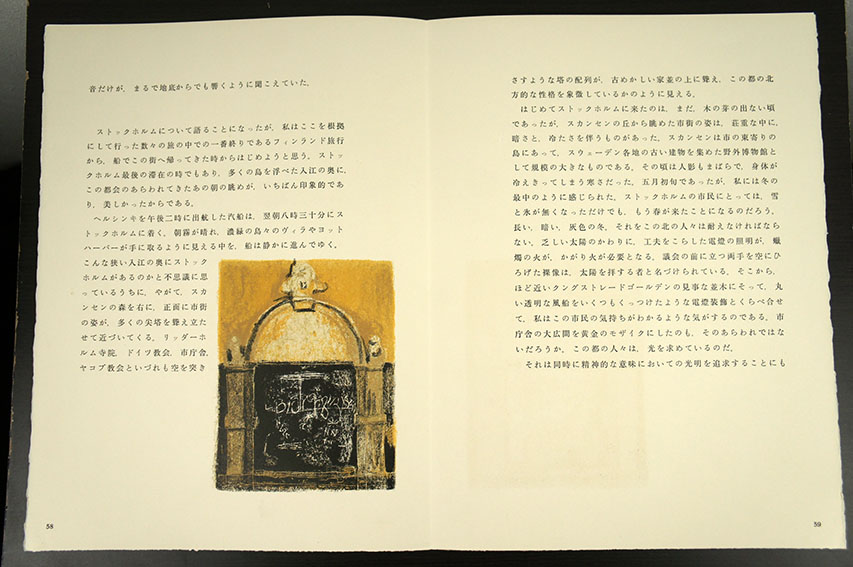 音だけが，まるで地底からでも響くように聞こえていた。
ストックホルムについて語ることになったが，私はここを根拠
にして行った数々の旅の中での一番終りであるフィンランド旅行
から，船でこの街へ帰ってきた時からはじめようと思う。ストッ
クホルム最後の滞在の時でもあり，多くの島を浮べた入江の奥に，
この都会のあらわれてきたあの朝の眺めが，いちばん印象的であ
り，美しかったからである。
ヘルシンキを午後二時に出航した汽船は，翌朝八時三十分にス
トックホルムに着く。朝霧が晴れ，濃緑の島々のヴィラやヨット
ハーバーが手に取るように見える中を，船は静かに進んでゆく。
こんな狭い入江の奥にストック
ホルムがあるのかと不思議に思
っているうちに，やがて，スカ
ンセンの森を右に，正面に市街
の姿が，多くの尖塔を聳え立た
せて近づいてくる。リッダーホ
ルム寺院，ドイツ教会，市庁舎，
ヤコブ教会といづれも空を突き
58
さすような塔の配列が，古めかしい家並の上に聳え，この都の北
方的な性格を象徴しているかのように見える。
はじめてストックホルムに来たのは，まだ，木の芽の出ない頃
であったが，スカンセンの丘から眺めた市街の姿は，荘重な中に，
暗さと，冷たさを伴うものがあった。スカンセンは市の東寄りの
島にあって，スウェーデン各地の古い建物を集めた野外博物館と
して規模の大きなものである。その頃は人影もまばらで，身体が
冷えきってしまう寒さだった。五月初旬であったが，私には冬の
最中のように感じられた。ストックホルムの市民にとっては，雪
と氷が無くなっただけでも，もう春が来たことになるのだろう。
長い，暗い，灰色の冬，それをこの北の人々は耐えなければなら
ない。乏しい太陽のかわりに，工夫をこらした電燈の照明が，蠟
燭の火が，かがり火が必要となる。議会の前に立つ両手を空にひ
ろげた裸像は，太陽を拝する者と名づけられている。そこから，
ほど近いクングストレードゴールデンの見事な並木にそって，丸
い透明な風船をいくつもくっつけたような電燈装飾とくらべ合せ
て，私はこの市民の気持ちがわかるような気がするのである。市
庁舎の大広間を黄金のモザイクにしたのも，そのあらわれではな
いだろうか。この都の人々は，光を求めているのだ。
それは同時に精神的な意味においての光明を追求することにも
59